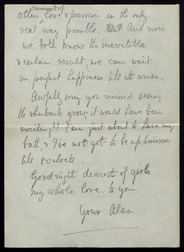 other, love & passion in the only
real way possible. But And now
we both know the inevitable
& certain result, we can wait
in perfect happiness till it comes.
Awfully sorry you missed seeing
the rhubarb grow; it would have been
exciting!! I am just about to have my
bath, & I've not got to be up tomorrow
till 8 o'clock.
Goodnight dearest of girls
my whole love to you
Your Alan